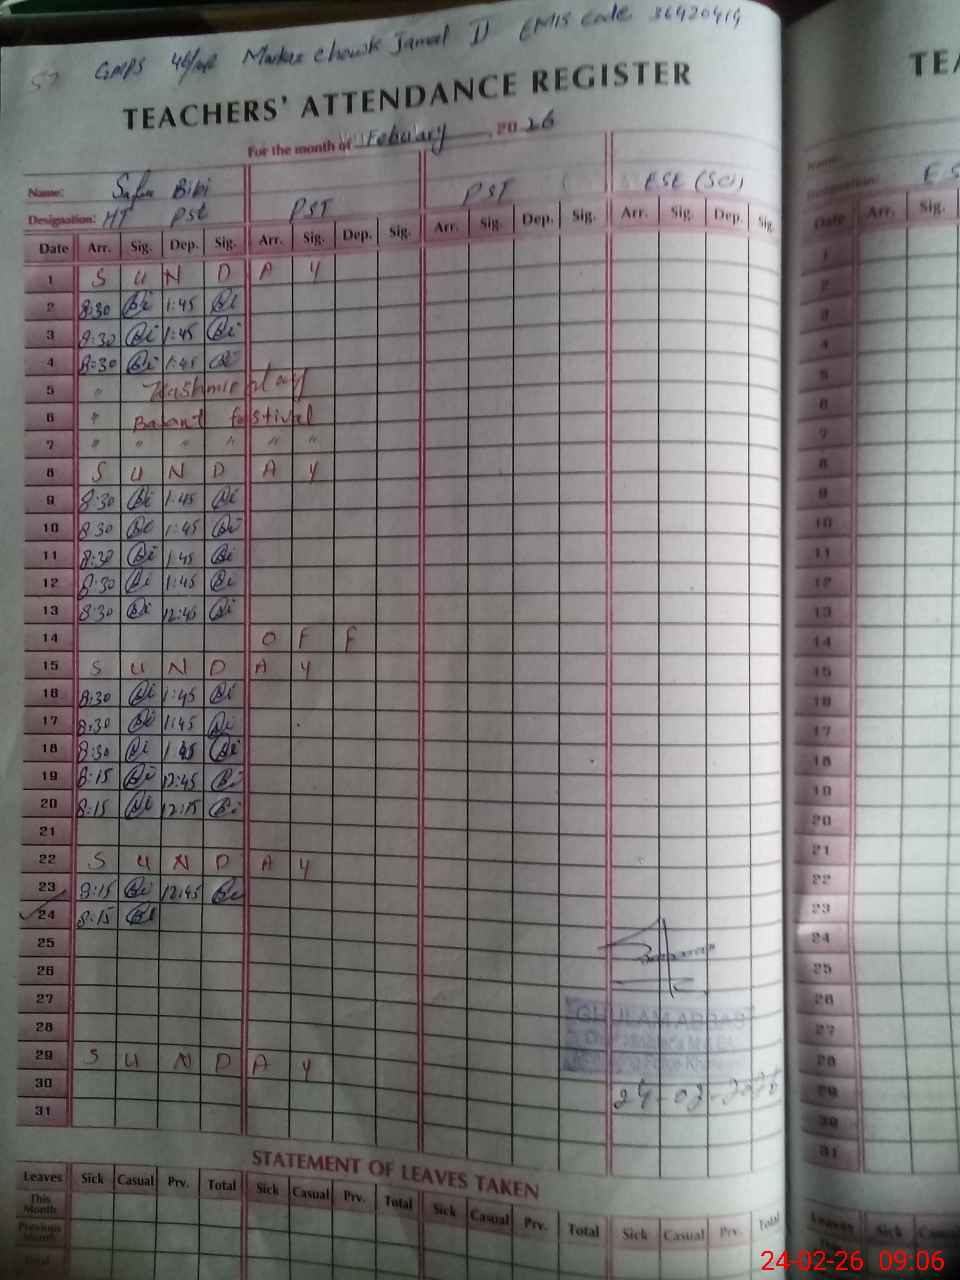 57 GMPS 46/MP Markaz Chowk Jamal II EMIS Code 36420414
TEACHERS' ATTENDANCE REGISTER
For the month of Febuary, 2026
Name: Bibi
Designation: HT PSt PST PST ESE (Sci)
Date Arr. Sig. Dep. Sig. Arr. Sig. Dep. Sig. Arr. Sig. Dep. Sig. Arr. Sig. Dep. Sig.
1 S U N D A Y
2 8:30 Bi 1:45 Bi
3 8:30 Bi 1:45 Bi
4 8:30 Bi 1:45 Bi
5 " Kashmir day
6 " Basant festival
7 " " " " " "
8 S U N D A Y
9 8:30 Bi 1:45 Bi
10 8:30 Bi 1:45 Bi
11 8:30 Bi 1:45 Bi
12 8:30 Bi 1:45 Bi
13 8:30 Bi 12:45 Bi
14 O F F
15 S U N D A Y
16 8:30 Bi 1:45 Bi
17 8:30 Bi 1:45 Bi
18 8:30 Bi 1:45 Bi
19 8:15 Bi 12:45 Bi
20 8:15 Bi 12:15 Bi
21
22 S U N D A Y
23 8:15 Bi 12:45 Bi
24 8:15 Bi
25
26
27
28
29 S U N D A Y
30
31
GHULAM ABBAS
24-02-2026
STATEMENT OF LEAVES TAKEN
Leaves Sick Casual Prv. Total Sick Casual Prv. Total Sick Casual Prv. Total Sick Casual Prv. Total
This Month
Previous Month
Total
TEA
Name:
Designation: ES
Date Arr. Sig.
1
2
3
4
5
6
7
8
9
10
11
12
13
14
15
16
17
18
19
20
21
22
23
24
25
26
27
28
29
30
31
Leaves Sick
24-02-26 09:06